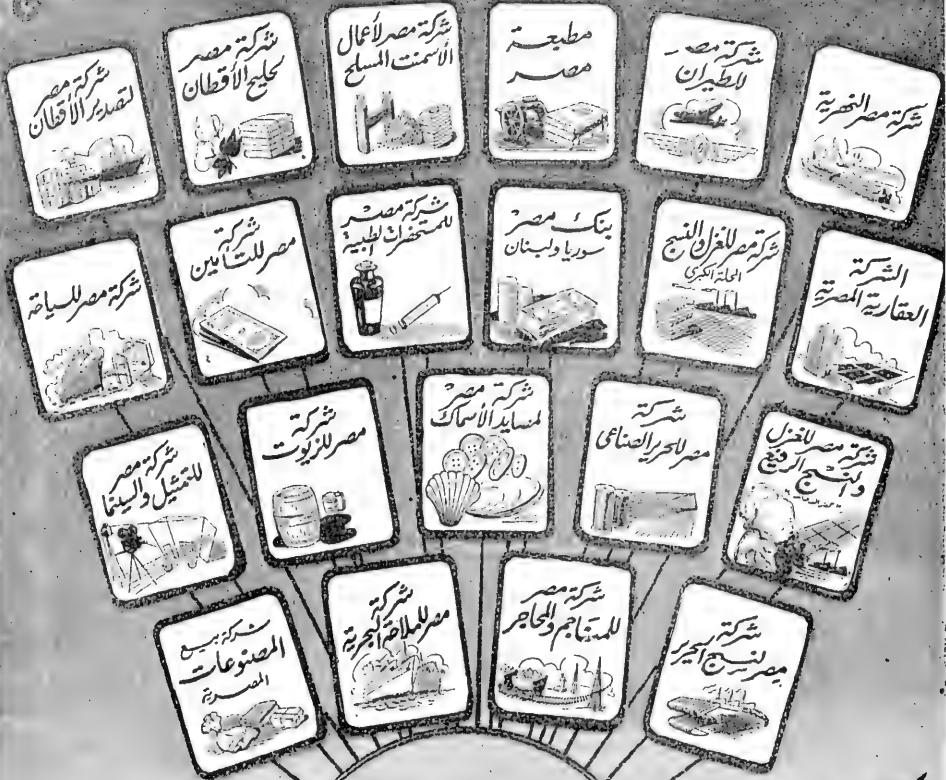 شركة مصر النهرية
شركة مصر
للطيران
مطبعة
مصر
شركة مصر لأعمال
الأسمنت المسلح
شركة مصر
لحليج الأقطان
شركة مصر
لتصدير الأقطان
الشركة
العقارية المصرية
شركة مصر للغزل والنسيج
المحلة الكبرى
بنك مصر
سوريا ولبنان
شركة مصر
للمستحضرات الطبية
شركة
مصر للتأمين
شركة مصر للسياحة
شركة مصر للغزل
والنسيج الرفيع
شركة
مصر للحرير الصناعى
شركة مصر
لمصايد الأسماك
شركة
مصر للزيوت
شركة مصر
للتمثيل والسينما
شركة
مصر لنسج الحرير
شركة مصر
للمناجم والمحاجر
شركة
مصر للملاحة البحرية
شركة بيع
المصنوعات
المصرية